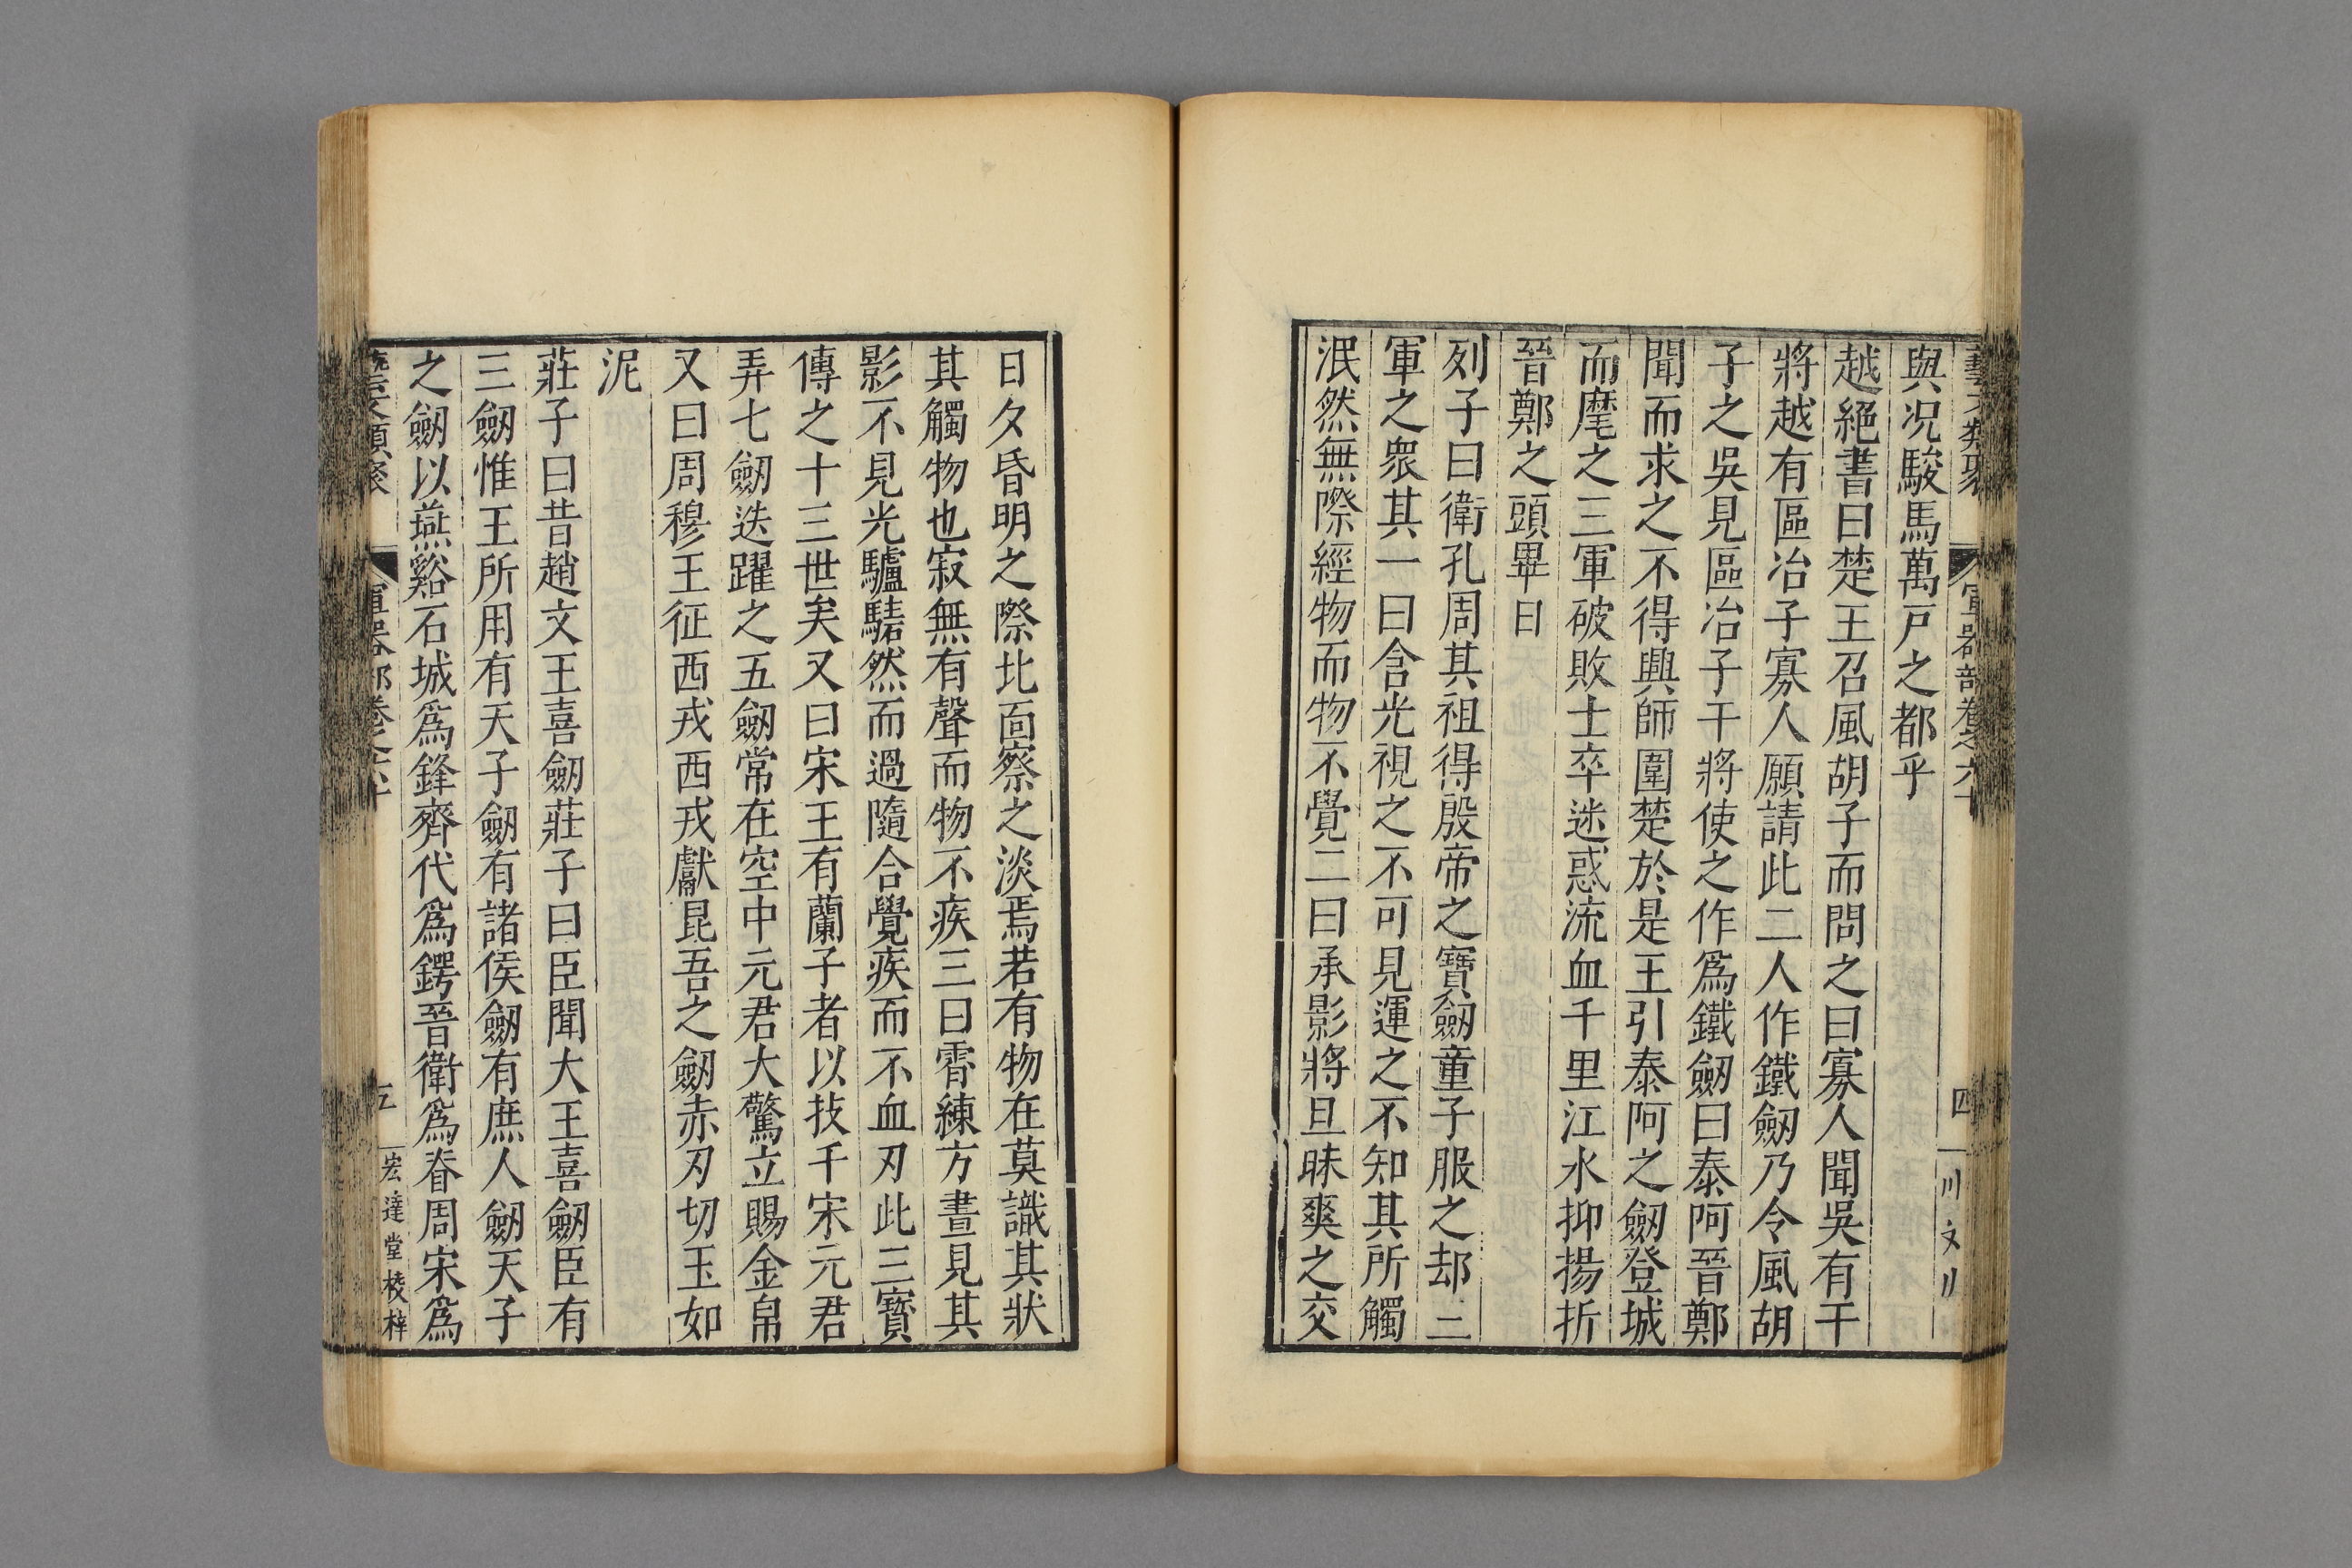 與况駿馬萬戸之都乎
越絕書曰楚王召風胡子而問之曰寡人聞吳有干
將越有區冶子寡人願請此二人作鐵劒乃令風胡
子之吳見區冶子干將使之作爲鐵劒曰泰阿晉鄭
聞而求之不得興師圍楚於是王引泰阿之劒登城
而麾之三軍破敗士卒迷惑流血千里江水抑揚折
晉鄭之頭畢白
列子曰衛孔周其祖得殷帝之寶劒童子服之却三
軍之衆其一曰含光視之不可見運之不知其所觸
泯然無際經物而物不覺二曰承影將旦昧爽之交
日夕昏明之際北面察之淡焉若有物在莫識其狀
其觸物也寂無有聲而物不疾三曰霄練方晝見其
影不見光驢騞然而過隨合覺疾而不血刃此三寶
傳之十三世矣又曰宋王有蘭子者以技千宋元君
弄七劒迭躍之五劒常在空中元君大驚立賜金帛
又曰周穆王征西戎西戎獻昆吾之劒赤刃切玉如
泥
莊子曰昔趙文王喜劒莊子曰臣聞大王喜劒臣有
三劒惟王所用有天子劒有諸侯劒有庶人劒天子
之劒以燕谿石城爲鋒齊代爲鍔晉衛爲脊周宋爲
五
宏達堂校梓